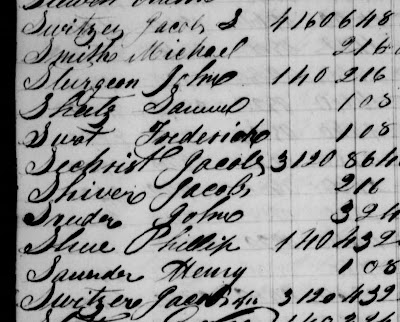 Switzer Jacob S 4 160 648
Smith Michael 216
Sturgeon John 140 216
Sheetz Samuel 108
Swat Frederick 108
Sechrist Jacob 3 120 864
Shiver Jacob 216
Snuder John 324
Shue Phillip 140 432
Saunder Henry 108
Switzer Jacob Jr 3 120 432